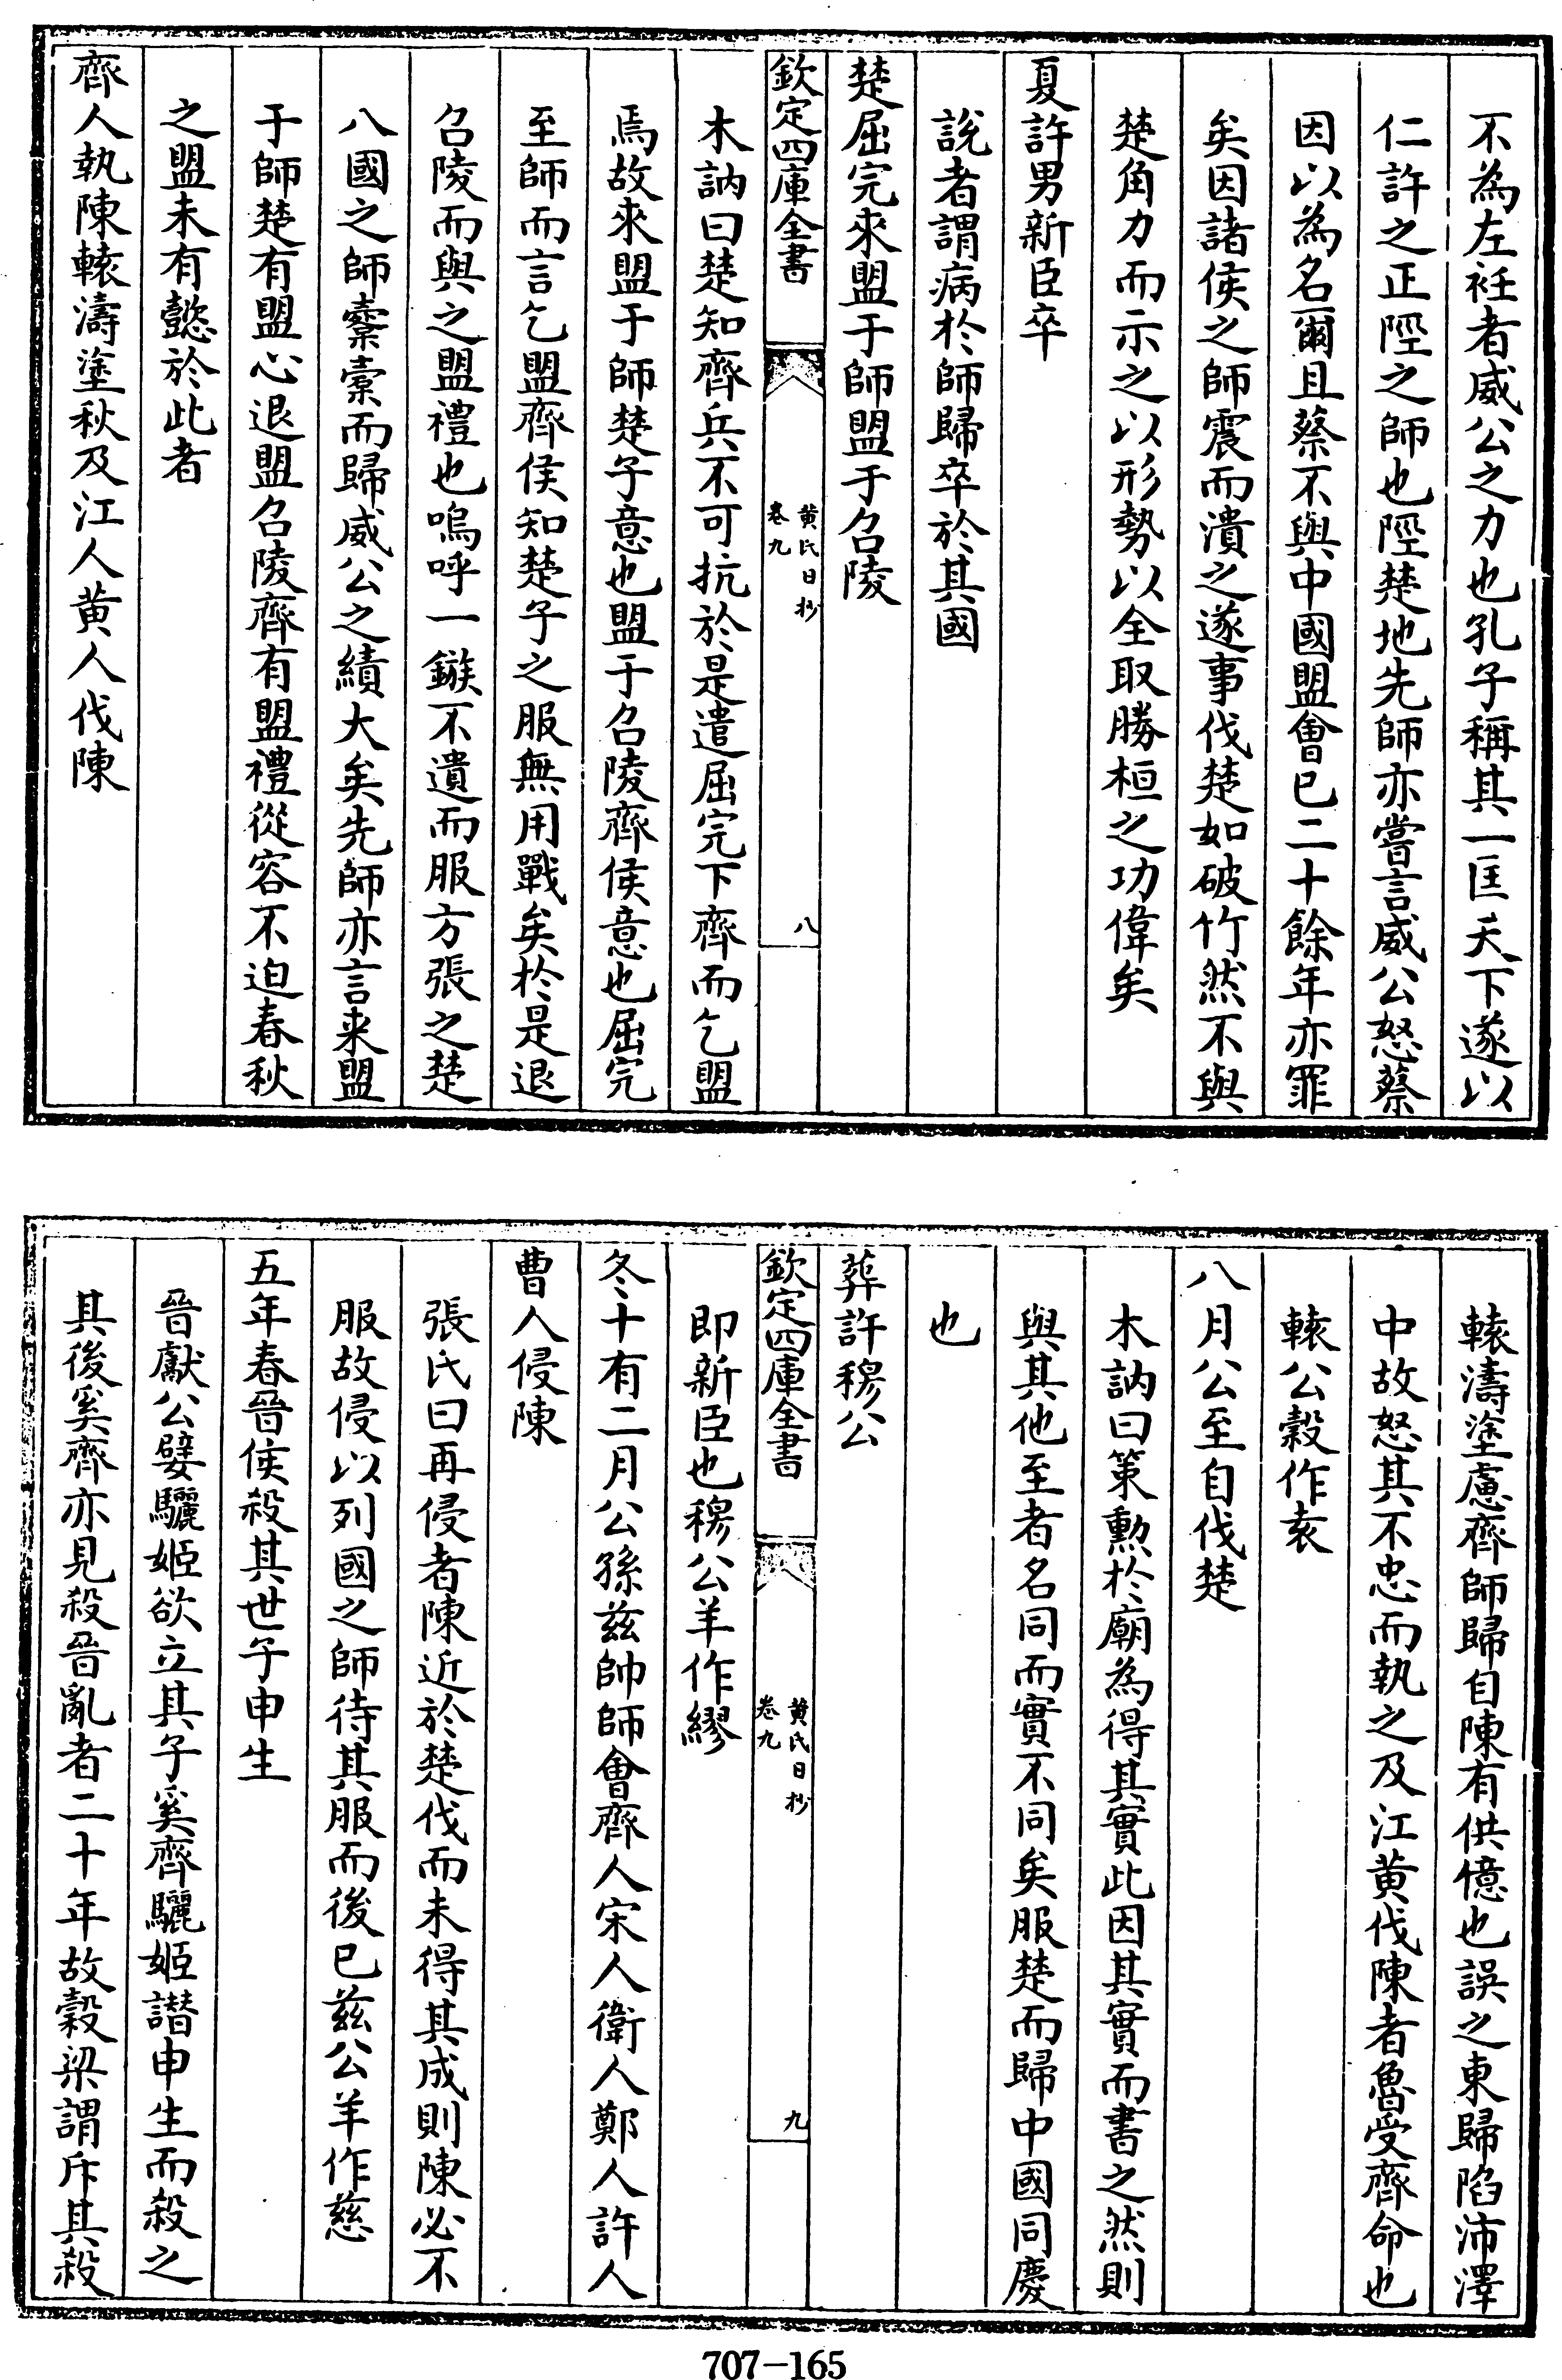 不為左衽者威公之力也孔子稱其一匡天下遂以
仁許之正陘之師也陘楚地先師亦嘗言威公怒蔡
因以為名爾且蔡不與中國盟會已二十餘年亦罪
矣因諸侯之師震而潰之遂事伐楚如破竹然不與
楚角力而示之以形勢以全取勝桓之功偉矣
夏許男新臣卒
說者謂病於師歸卒於其國
楚屈完來盟于師盟于召陵
欽定四庫全書
黄氏日抄
卷九
八
木訥曰楚知齊兵不可抗於是遣屈完下齊而乞盟
焉故來盟于師楚子意也盟于召陵齊侯意也屈完
至師而言乞盟齊侯知楚子之服無用戰矣於是退
召陵而與之盟禮也嗚呼一鏃不遺而服方張之楚
八國之師櫜橐而歸威公之績大矣先師亦言来盟
于師楚有盟心退盟召陵齊有盟禮從容不迫春秋
之盟未有懿於此者
齊人執陳轅濤塗秋及江人黄人伐陳
轅濤塗慮齊師歸自陳有供億也誤之東歸陷沛澤
中故怒其不忠而執之及江黄伐陳者魯受齊命也
轅公榖作袁
八月公至自伐楚
木訥曰策勲於廟為得其實此因其實而書之然則
與其他至者名同而實不同矣服楚而歸中國同慶
也
葬許穆公
欽定四庫全書
黄氏日抄
卷九
九
即新臣也穆公羊作繆
冬十有二月公孫兹帥師會齊人宋人衛人鄭人許人
曹人侵陳
張氏曰再侵者陳近於楚伐而未得其成則陳必不
服故侵以列國之師待其服而後已兹公羊作慈
五年春晉侯殺其世子申生
晉獻公嬖驪姬欲立其子奚齊驪姬譖申生而殺之
其後奚齊亦見殺晉亂者二十年故榖梁謂斥其殺
707-165